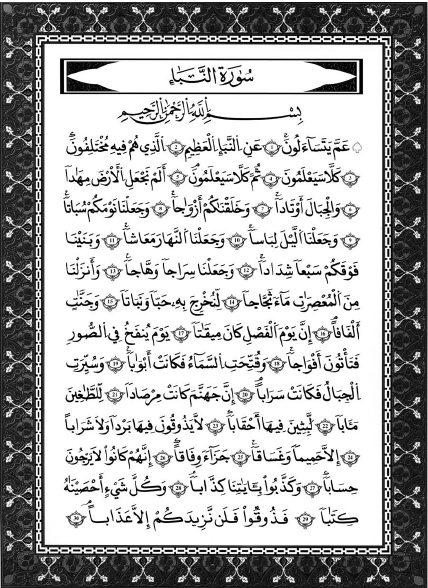 سُورَةُ النَّبَإِ
بِسْمِ اللَّهِ الرَّحْمَٰنِ الرَّحِيمِ
عَمَّ يَتَسَاءَلُونَ ۝1 عَنِ النَّبَإِ الْعَظِيمِ ۝2 الَّذِي هُمْ فِيهِ مُخْتَلِفُونَ
۝3 كَلَّا سَيَعْلَمُونَ ۝4 ثُمَّ كَلَّا سَيَعْلَمُونَ ۝5 أَلَمْ نَجْعَلِ الْأَرْضَ مِهَٰدًا
۝6 وَالْجِبَالَ أَوْتَادًا ۝7 وَخَلَقْنَٰكُمْ أَزْوَٰجًا ۝8 وَجَعَلْنَا نَوْمَكُمْ سُبَاتًا
۝9 وَجَعَلْنَا اللَّيْلَ لِبَاسًا ۝10 وَجَعَلْنَا النَّهَارَ مَعَاشًا ۝11 وَبَنَيْنَا
فَوْقَكُمْ سَبْعًا شِدَادًا ۝12 وَجَعَلْنَا سِرَاجًا وَهَّاجًا ۝13 وَأَنزَلْنَا
مِنَ الْمُعْصِرَٰتِ مَاءً ثَجَّاجًا ۝14 لِّنُخْرِجَ بِهِۦ حَبًّا وَنَبَاتًا ۝15 وَجَنَّٰتٍ
أَلْفَافًا ۝16 إِنَّ يَوْمَ الْفَصْلِ كَانَ مِيقَٰتًا ۝17 يَوْمَ يُنفَخُ فِي الصُّورِ
فَتَأْتُونَ أَفْوَاجًا ۝18 وَفُتِحَتِ السَّمَاءُ فَكَانَتْ أَبْوَٰبًا ۝19 وَسُيِّرَتِ
الْجِبَالُ فَكَانَتْ سَرَابًا ۝20 إِنَّ جَهَنَّمَ كَانَتْ مِرْصَادًا ۝21 لِّلطَّٰغِينَ
مَـَٔابًا ۝22 لَّٰبِثِينَ فِيهَا أَحْقَابًا ۝23 لَّا يَذُوقُونَ فِيهَا بَرْدًا وَلَا شَرَابًا
۝24 إِلَّا حَمِيمًا وَغَسَّاقًا ۝25 جَزَاءً وِفَاقًا ۝26 إِنَّهُمْ كَانُوا لَا يَرْجُونَ
حِسَابًا ۝27 وَكَذَّبُوا بِـَٔايَٰتِنَا كِذَّابًا ۝28 وَكُلَّ شَيْءٍ أَحْصَيْنَٰهُ
كِتَٰبًا ۝29 فَذُوقُوا فَلَن نَّزِيدَكُمْ إِلَّا عَذَابًا ۝30